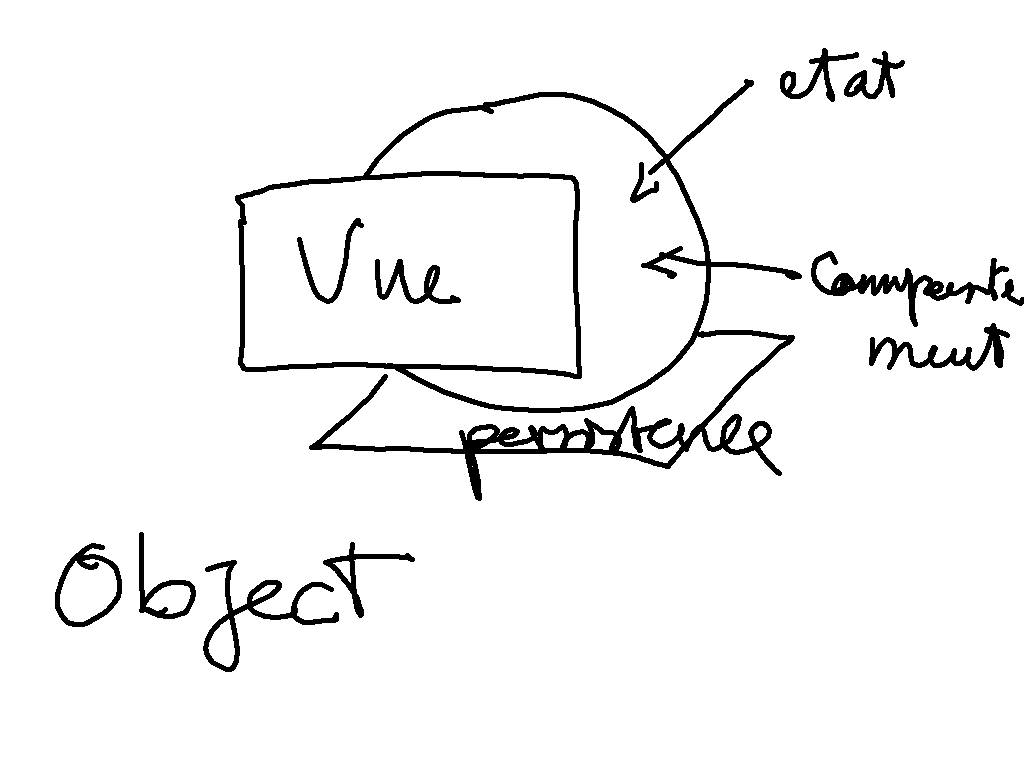 etat
Vue
Comporte
ment
persistence
Object